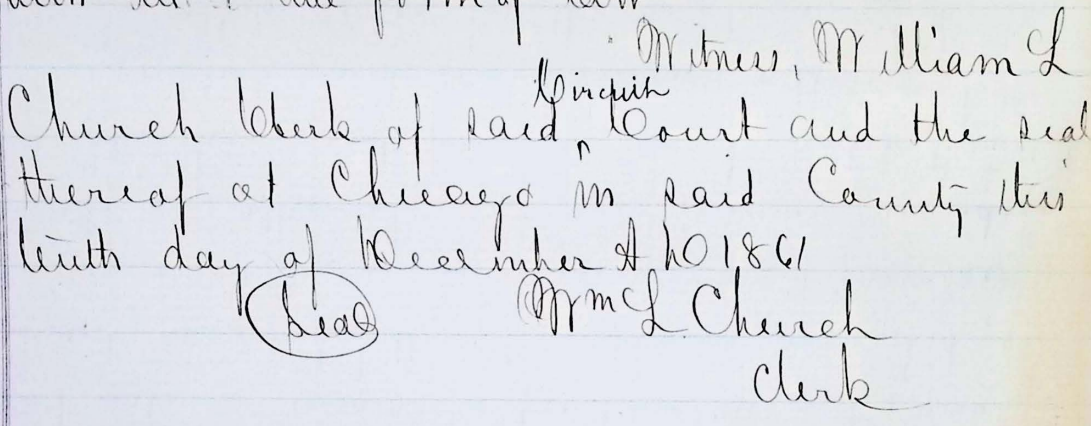 form of law
Witness, William L
Circuit
Church Clerk of said ^ Court and the seal
thereof at Chicago in said County this
tenth day of December A D 1861
Seal Wm L Church
Clerk